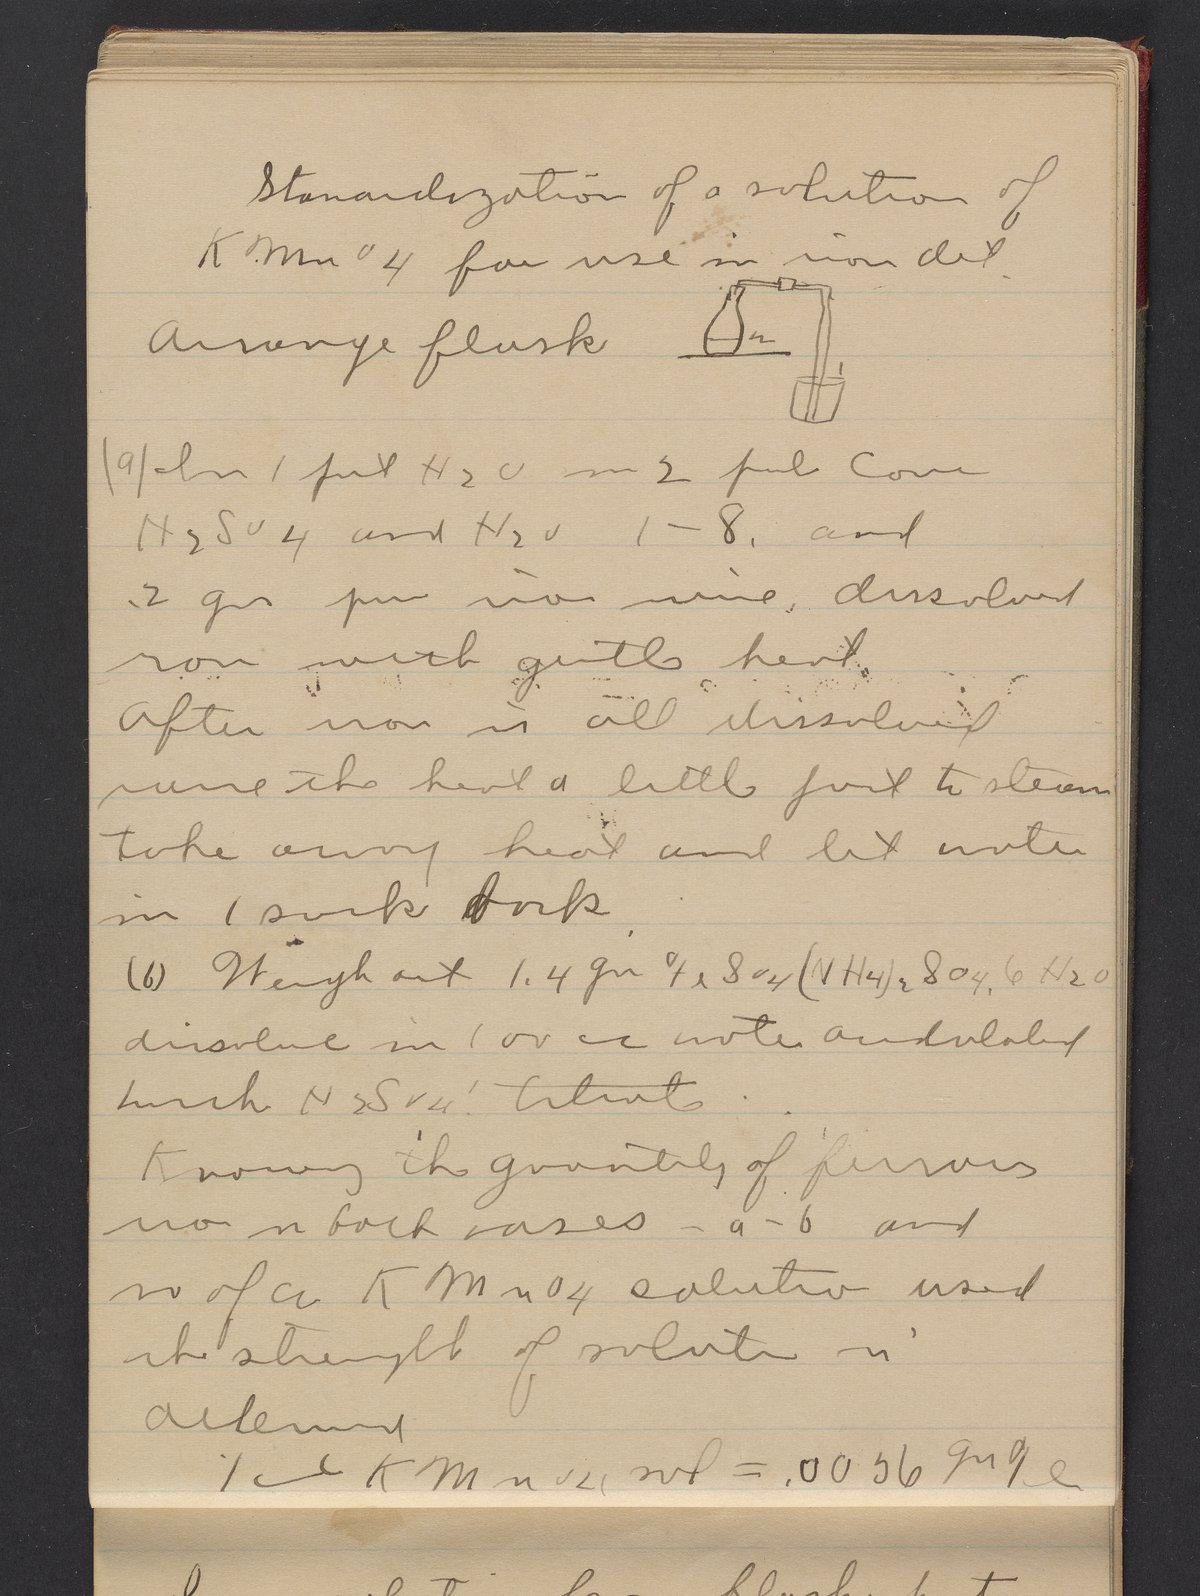 Standardization of a solution of
KMnO4 for use in iron det.
Arrange flask
(a) In 1 put H2O in 2 put Conc
H2SO4 and H2O 1-8. and
.2 gr pure iron wire, dissolved
iron with gentle heat.
After iron is all dissolved
raise the heat a little just to steam
take away heat and let water
in 1 suck back.
(b) Weigh out 1.4 gr FeSO4(NH4)2SO4.6H2O
dissolve in 100 cc water acidulated
with H2SO4. Titrate.
Knowing the quantity of ferrous
iron in both cases - a - b and
no of cc KMnO4 solution used
the strength of solution is
determined
1 cc KMnO4 sol = .0056 gr Fe